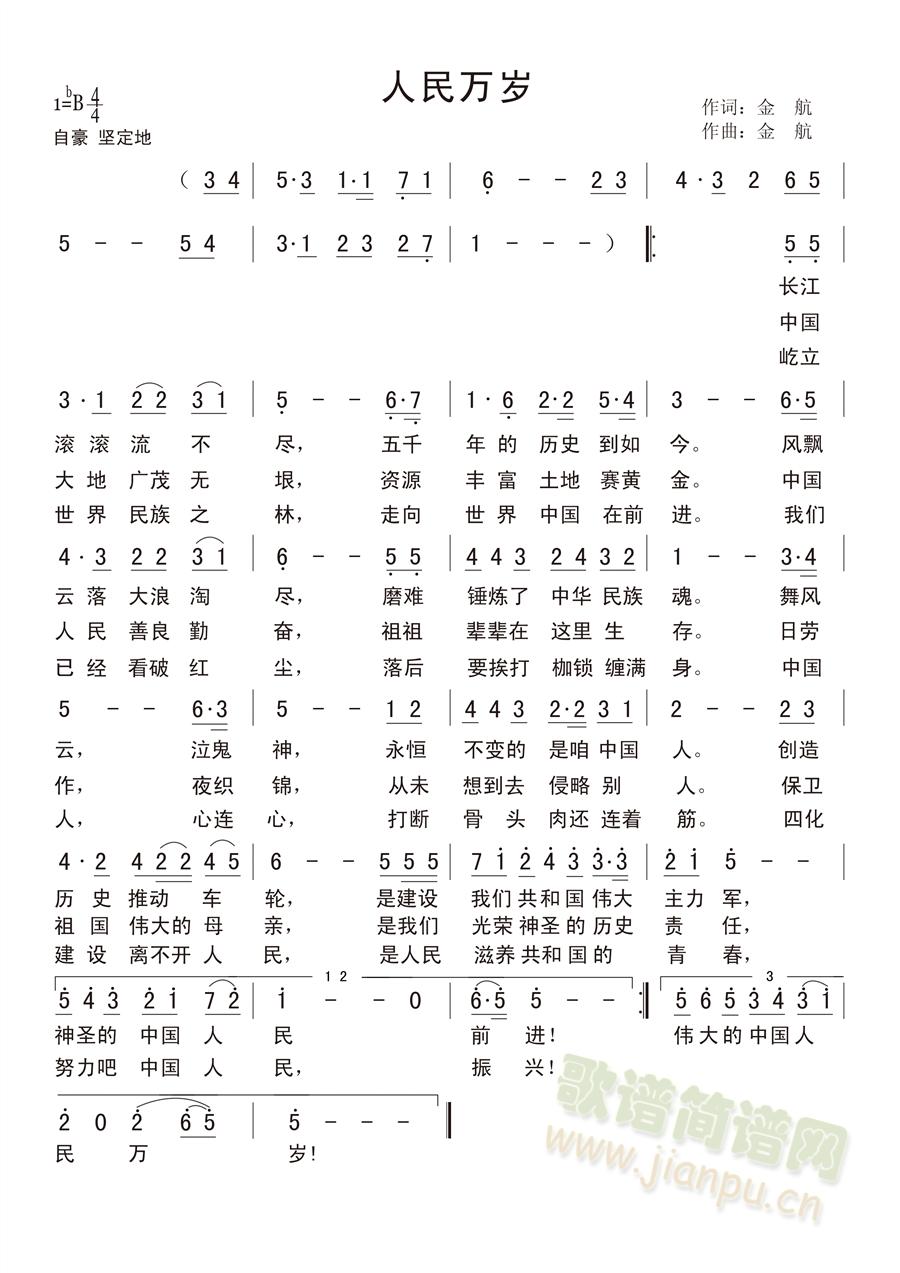 人民万岁
1=♭B 4/4
作词：金 航
自豪 坚定地
作曲：金 航
（ 3 4 | 5·3 1·1 7 1 | 6 - - 2 3 | 4·3 2 6 5 |
5 - - 5 4 | 3·1 2 3 2 7 | 1 - - - ） ‖: 5 5 |
长江
中国
屹立
3·1 2 2 3 1 | 5 - - 6·7 | 1·6 2·2 5·4 | 3 - - 6·5 |
滚滚流不尽，五千年的历史到如今。风飘
大地广茂无垠，资源丰富土地赛黄金。中国
世界民族之林，走向世界中国在前进。我们
4·3 2 2 3 1 | 6 - - 5 5 | 4 4 3 2 4 3 2 | 1 - - 3·4 |
云落大浪淘尽，磨难锤炼了中华民族魂。舞风
人民善良勤奋，祖祖辈辈在这里生存。日劳
已经看破红尘，落后要挨打枷锁缠满身。中国
5 - - 6·3 | 5 - - 1 2 | 4 4 3 2·2 3 1 | 2 - - 2 3 |
云，泣鬼神，永恒不变的是咱中国人。创造
作，夜织锦，从未想到去侵略别人。保卫
人，心连心，打断骨头肉还连着筋。四化
4·2 4 2 2 4 5 | 6 - - 5 5 5 | 7 1 2 4 3 3·3 | 2 1 5 - - |
历史推动车轮，是建设我们共和国伟大主力军，
祖国伟大的母亲，是我们光荣神圣的历史责任，
建设离不开人民，是人民滋养共和国的青春，
1 2
3
5 4 3 2 1 7 2 | 1 - - 0 | 6·5 5 - - :‖ 5 6 5 3 4 3 1 |
神圣的中国人民前进！伟大的中国人
努力吧中国人民，振兴！
2 0 2 6 5 | 5 - - - ‖
民万岁！
歌谱简谱网
www.jianpu.cn